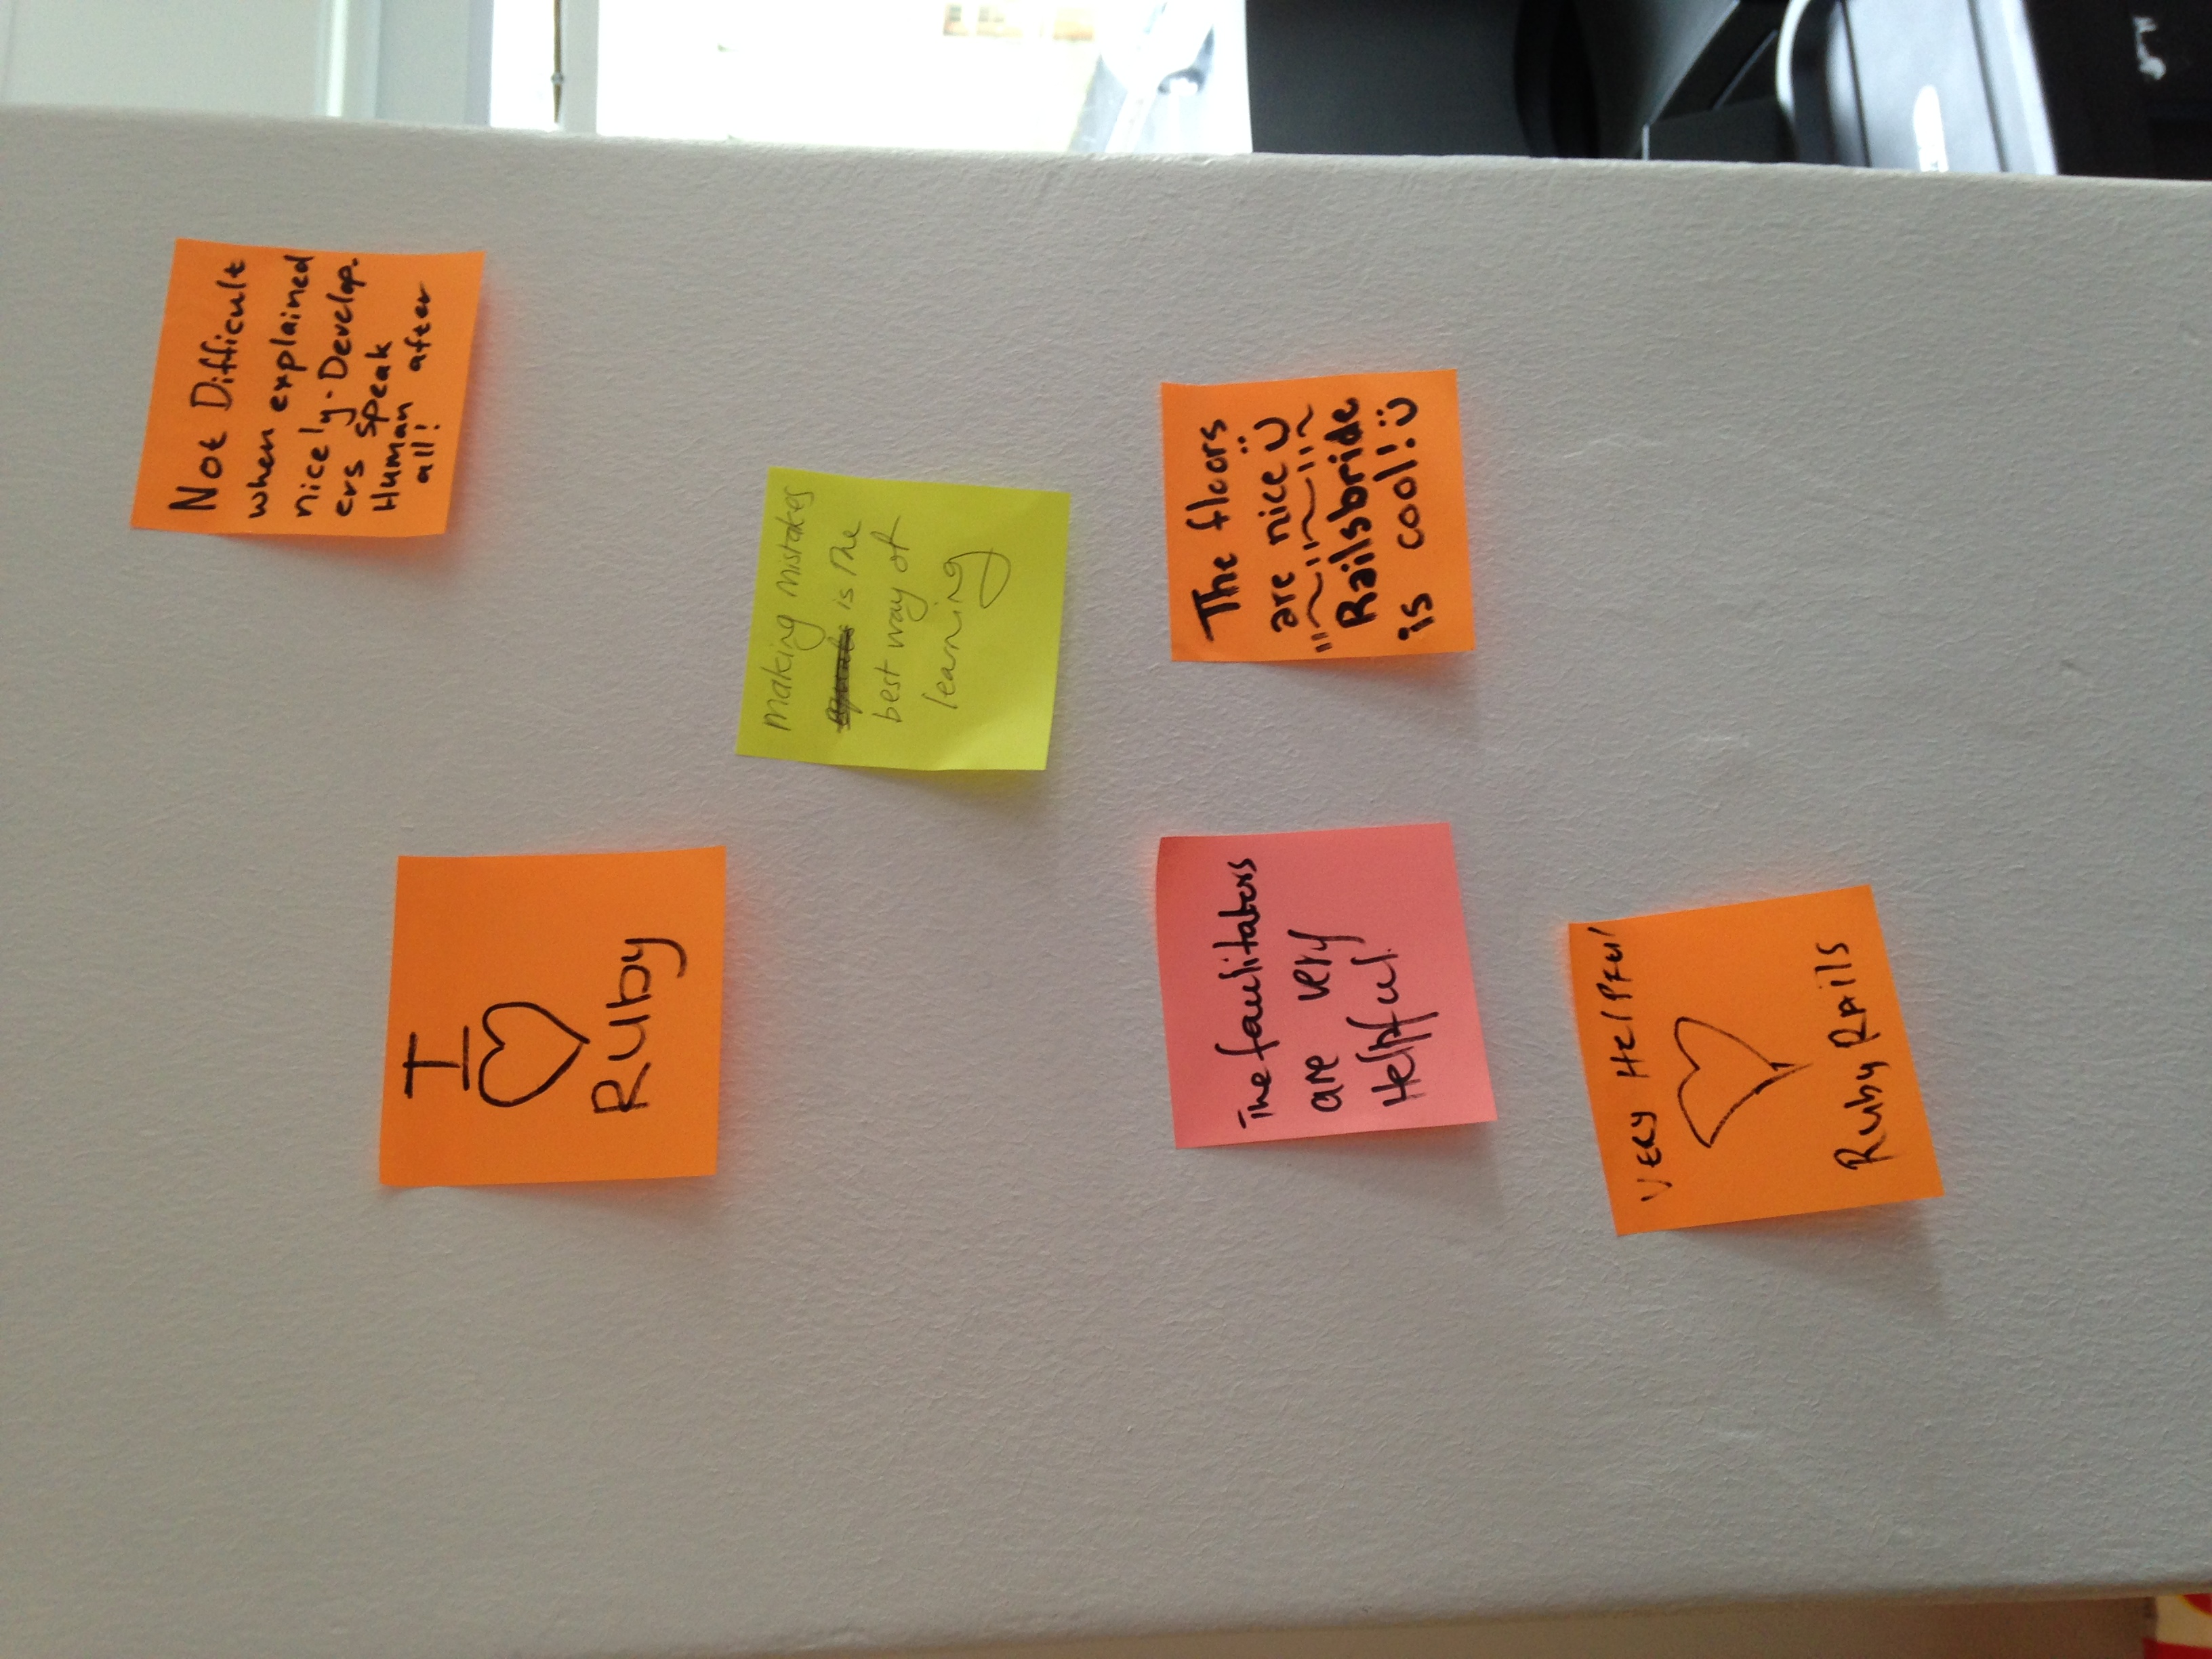 Not Difficult
when explained
nicely. Develop-
ers speak
Human after
all!
I
♡
Ruby
making mistakes
equals is the
best way of
learning
The faulitators
are very
Helpful.
The floors
are nice Ü
Railsbride
is cool! Ü
VERy HElPFul
♡
Ruby RAils